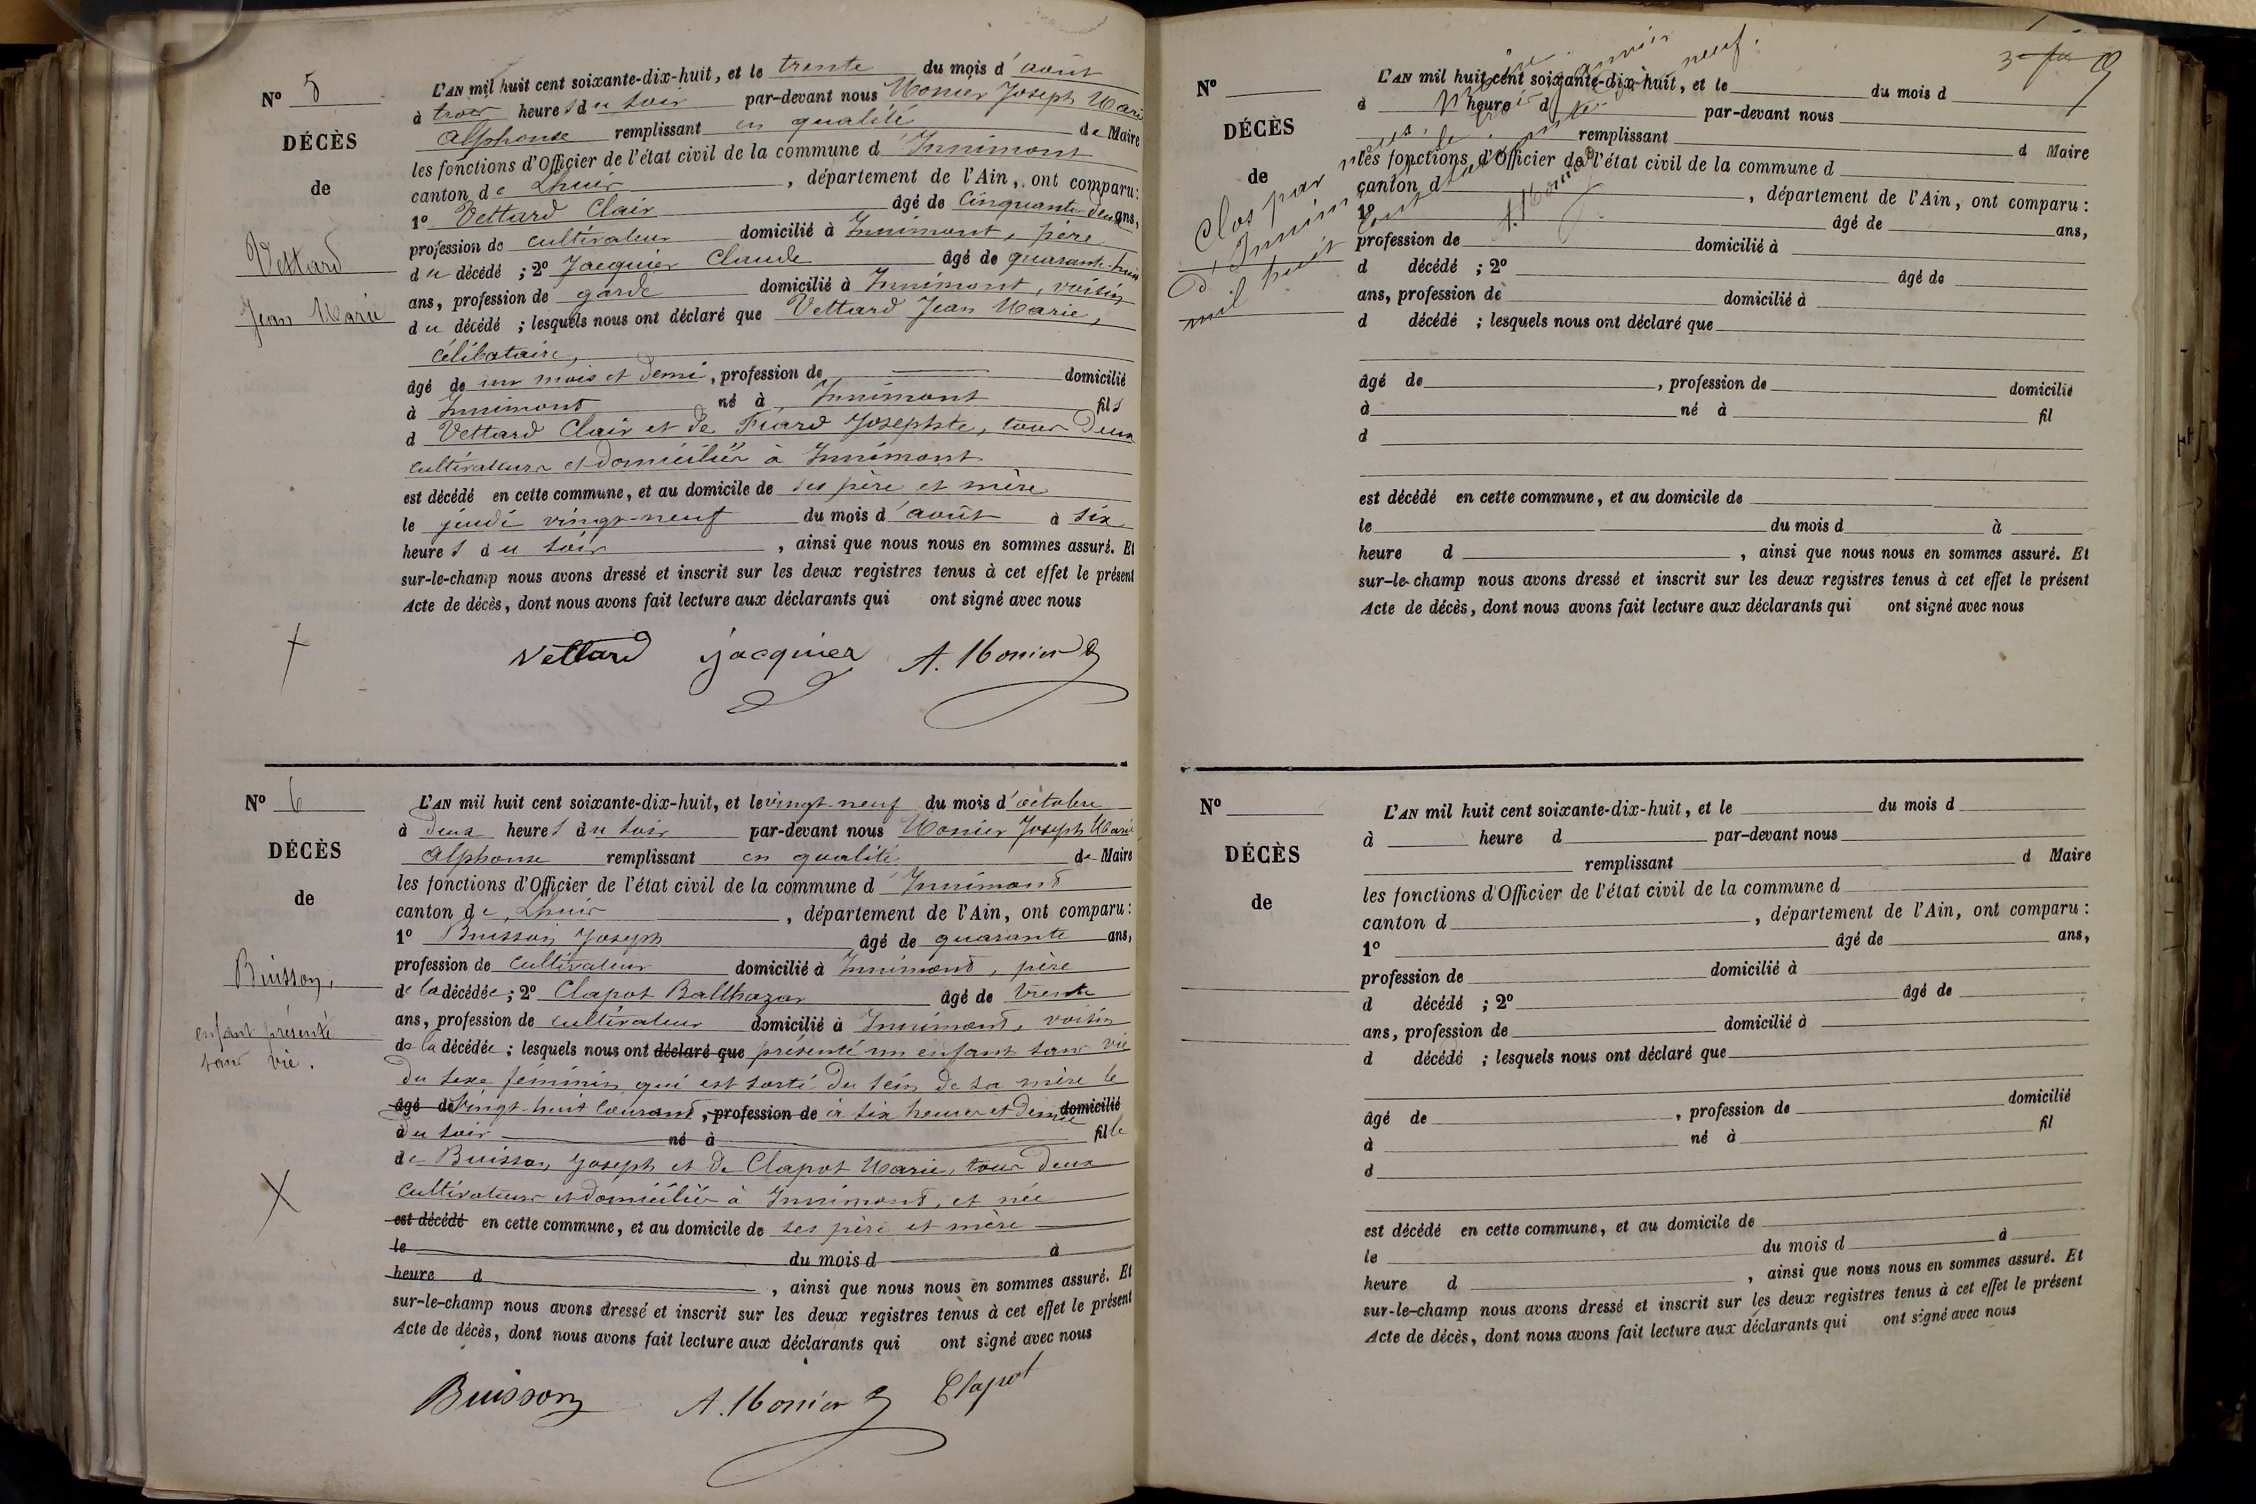 Nº 5
DÉCÈS
de
Vettard
Jean Marie
L'AN mil huit cent soixante-dix-huit, et le trente du mois d'août
à trois heures du soir par-devant nous Monier Joseph Marie
Alphonse remplissant en qualité de Maire
les fonctions d'Officier de l'état civil de la commune d'Innimont
canton de Lhuis, département de l'Ain, ont comparu:
1º Vettard Clair âgé de cinquante-deux ans,
profession de cultivateur domicilié à Innimont, père
du décédé ; 2º Jacquier Claude âgé de quarante-huit
ans, profession de garde domicilié à Innimont, voisin
du décédé ; lesquels nous ont déclaré que Vettard Jean Marie,
célibataire,
âgé de un mois et demi, profession de domicilié
à Innimont né à Innimont fils
d Vettard Clair et de Fiard Josephte, tous deux
cultivateurs et domiciliés à Innimont
est décédé en cette commune, et au domicile de ses père et mère
le jeudi vingt-neuf du mois d'août à six
heures du soir, ainsi que nous nous en sommes assuré. Et
sur-le-champ nous avons dressé et inscrit sur les deux registres tenus à cet effet le présent
Acte de décès, dont nous avons fait lecture aux déclarants qui ont signé avec nous
Vettard Jacquier A. Monier
Nº 6
DÉCÈS
de
Buisson,
enfant présenté
sans vie.
L'AN mil huit cent soixante-dix-huit, et le vingt-neuf du mois d'octobre
à deux heures du soir par-devant nous Monier Joseph Marie
Alphonse remplissant en qualité de Maire
les fonctions d'Officier de l'état civil de la commune d'Innimont
canton de Lhuis, département de l'Ain, ont comparu:
1º Buisson Joseph âgé de quarante ans,
profession de cultivateur domicilié à Innimont, père
de la décédée ; 2º Clapot Balthazar âgé de trente
ans, profession de cultivateur domicilié à Innimont, voisin
de la décédée ; lesquels nous ont déclaré que présenté un enfant sans vie
du sexe féminin qui est sorti du sein de sa mère le
âgé de vingt-huit courant, profession de à six heures et demie domicilié
à du soir né à fille
de Buisson Joseph et de Clapot Marie, tous deux
cultivateurs et domiciliés à Innimont, et née
est décédé en cette commune, et au domicile de ses père et mère
le du mois d à
heure d , ainsi que nous nous en sommes assuré. Et
sur-le-champ nous avons dressé et inscrit sur les deux registres tenus à cet effet le présent
Acte de décès, dont nous avons fait lecture aux déclarants qui ont signé avec nous
Buisson A. Monier Clapot
Nº
DÉCÈS
de
Clos par nous, maire
d'Innimont, le trois janvier
mil huit cent soixante-dix-neuf.
A. Monier
L'AN mil huit cent soixante-dix-huit, et le du mois d
à heure d par-devant nous
remplissant d Maire
les fonctions d'Officier de l'état civil de la commune d
canton d , département de l'Ain, ont comparu :
1º âgé de ans,
profession de domicilié à
d décédé ; 2º âgé de
ans, profession de domicilié à
d décédé ; lesquels nous ont déclaré que
âgé de , profession de domicilié
à né à fil
d
est décédé en cette commune, et au domicile de
le du mois d à
heure d , ainsi que nous nous en sommes assuré. Et
sur-le-champ nous avons dressé et inscrit sur les deux registres tenus à cet effet le présent
Acte de décès, dont nous avons fait lecture aux déclarants qui ont signé avec nous
Nº
DÉCÈS
de
L'AN mil huit cent soixante-dix-huit, et le du mois d
à heure d par-devant nous
remplissant d Maire
les fonctions d'Officier de l'état civil de la commune d
canton d , département de l'Ain, ont comparu :
1º âgé de ans,
profession de domicilié à
d décédé ; 2º âgé de
ans, profession de domicilié à
d décédé ; lesquels nous ont déclaré que
âgé de , profession de domicilié
à né à fil
d
est décédé en cette commune, et au domicile de
le du mois d à
heure d , ainsi que nous nous en sommes assuré. Et
sur-le-champ nous avons dressé et inscrit sur les deux registres tenus à cet effet le présent
Acte de décès, dont nous avons fait lecture aux déclarants qui ont signé avec nous